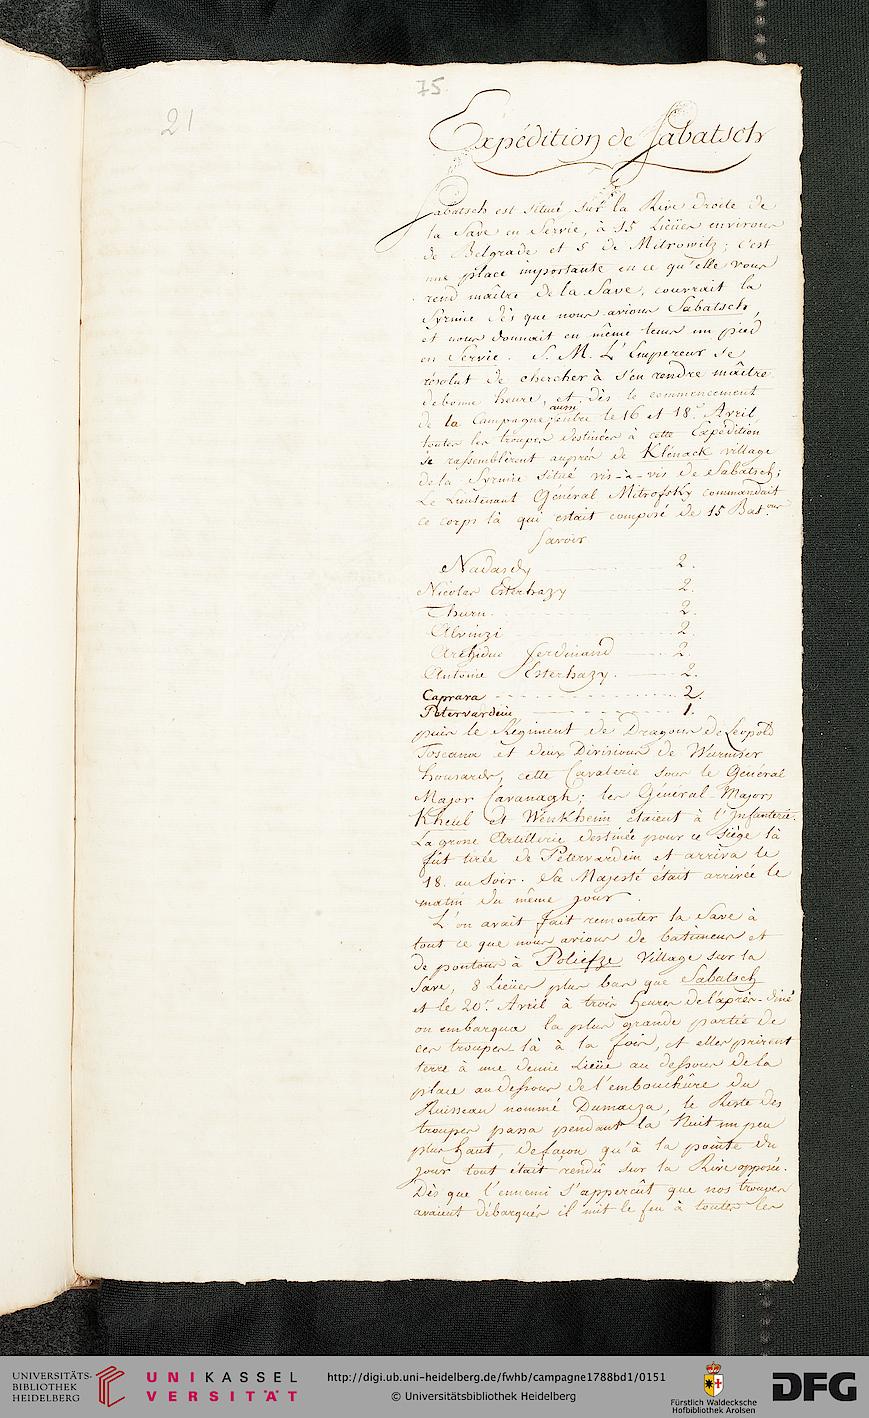 75
21
Expédition de Sabatsch
Sabatsch est situé sur la Rive droite de
la Save en Servie, à 15 Lieües environs
de Belgrade et 5 de Mitrowitz; c'est
une place importante en ce qu'elle vous
rend maître de la Save, couvrait la
Syrmie dès que nous avions Sabatsch,
et nous donnait en même tems un pied
en Servie. S. M. L'Empereur se
résolut de chercher à s'en rendre maître
de bonne heure, et dès le commencement
de la Campagne; aussi entre le 16 et 18.r Avril
toutes les troupes destinées à cette Expédition
se rassemblèrent auprès de Klénack village
de la Syrmie situé vis-à-vis de Sabatsch;
Le Lieutenant Général Mitrofsky commandait
ce corps là qui estait composé de 15 Bat.ons
Savoir
Nadasdy 2.
Nicolas Esterhazy 2.
Thurn. 2.
Alvinzi 2.
Archiduc Ferdinand 2.
Antoine Esterhazy. 2.
Caprara 2.
Petervardein 1.
puis le Régiment de Dragons de Leopold
Toscana et deux Divisions de Wurmser
housards, cette Cavalerie sous le Général
Major Cavanagh; les Général-Majors
Kheul et Wenkheim étaient à l'Infanterie.
La grosse Artillerie destinée pour ce Siège là
fût tirée de Petervardein et arriva le
18. au Soir. Sa Majesté était arrivée le
matin du même jour.
L'on avait fait remonter la Save à
tout ce que nous avions de batimens et
de pontons à Poliefze Village sur la
Save, 8 Lieües plus bas que Sabatsch
et le 20.r Avril à trois heures de l'après-diné
on embarqua la plus grande partie de
ces troupes-là à la fois, et elles prirent
terre à une demie Lieüe au dessous de la
place au dessous de l'embouchure du
Ruisseau nommé Dumacza, le Reste des
troupes passa pendant la Nuit un peu
plus haut, de façon qu'à la pointe du
jour tout était rendû sur la Rive opposée.
Dès que l'ennemi s'apperçût que nos troupes
avaient débarqués il mit le feu à toutes les
UNIVERSITÄTS-
BIBLIOTHEK
HEIDELBERG
UNIKASSEL
VERSITÄT
http://digi.ub.uni-heidelberg.de/fwhb/campagne1788bd1/0151
© Universitätsbibliothek Heidelberg
Fürstlich Waldecksche
Hofbibliothek Arolsen
DFG